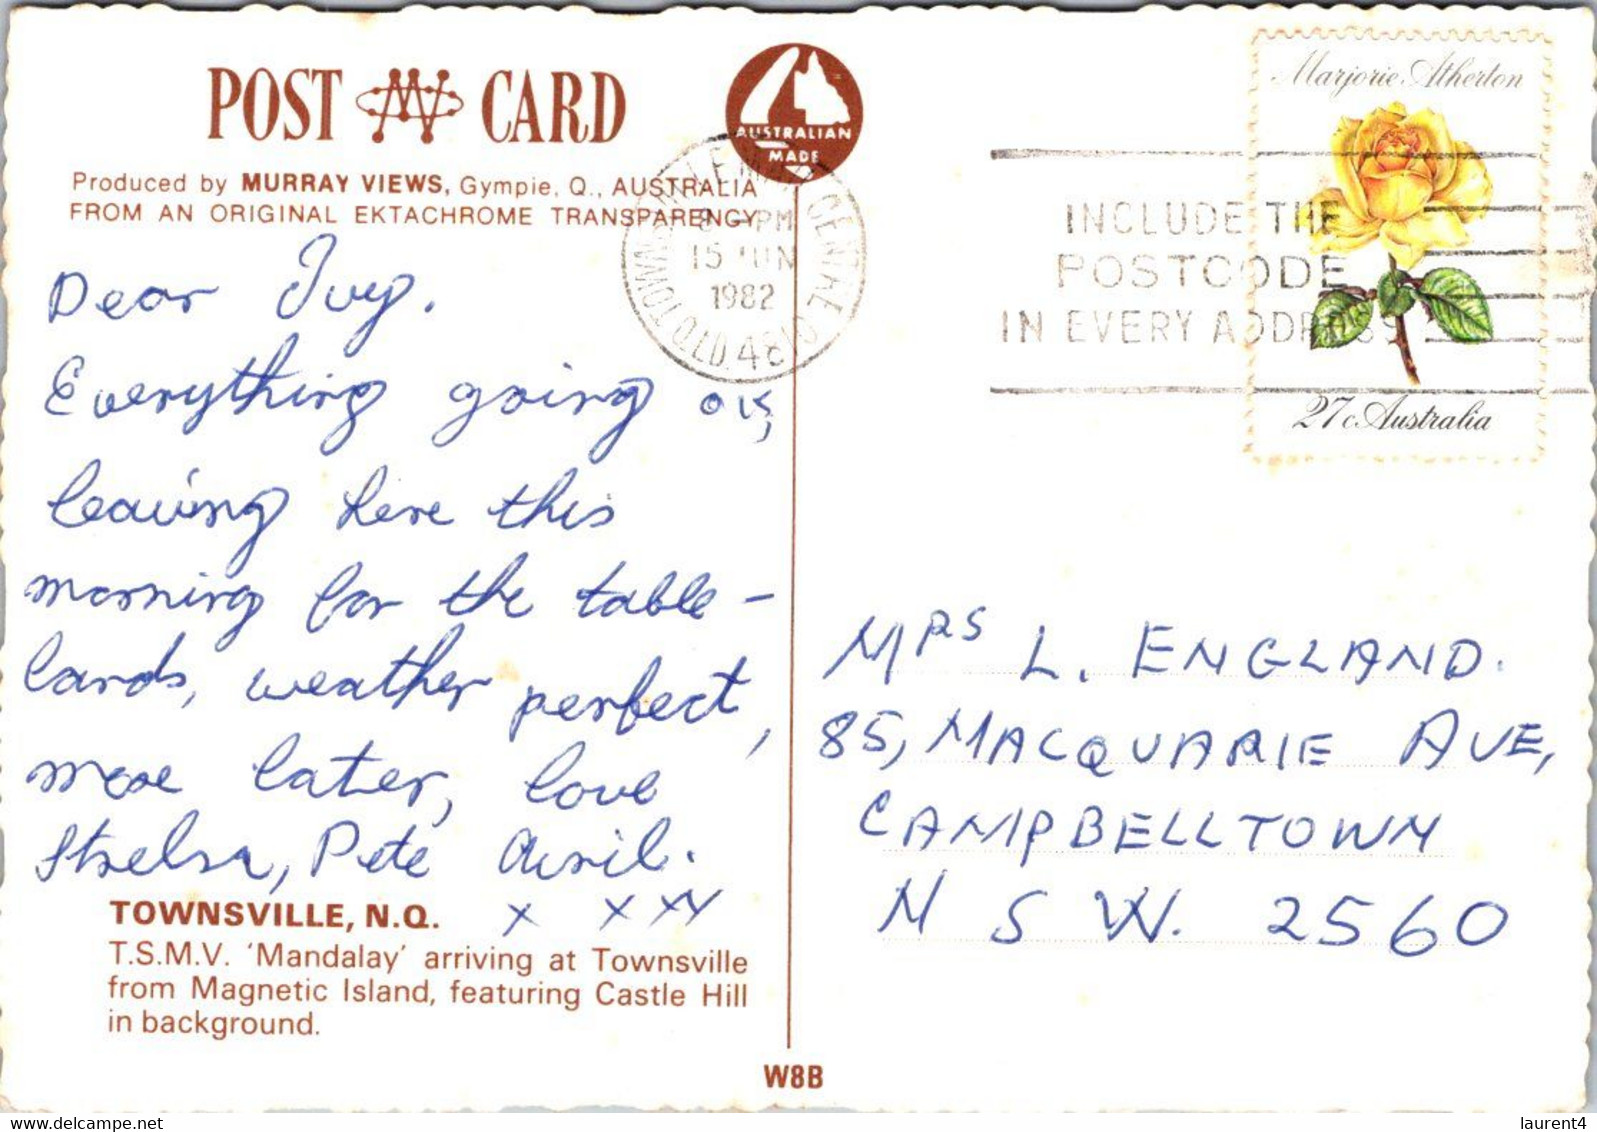 POST CARD
AUSTRALIAN
MADE
Produced by MURRAY VIEWS, Gympie, Q., AUSTRALIA
FROM AN ORIGINAL EKTACHROME TRANSPARENCY
Dear Ivy.
Everything going OK,
leaving here this
morning for the table-
lands, weather perfect,
more later, love
Thelsa, Pete Avril.
x x xx
TOWNSVILLE, N.Q.
T.S.M.V. 'Mandalay' arriving at Townsville
from Magnetic Island, featuring Castle Hill
in background.
W8B
PM
15 JUN
1982
CENTRE
QLD. 4810
INCLUDE THE
POSTCODE
IN EVERY ADDRESS
Marjorie Atherton
27c Australia
MRS L. ENGLAND.
85, MACQUARIE AVE,
CAMPBELLTOWN
N S W. 2560
laurent4